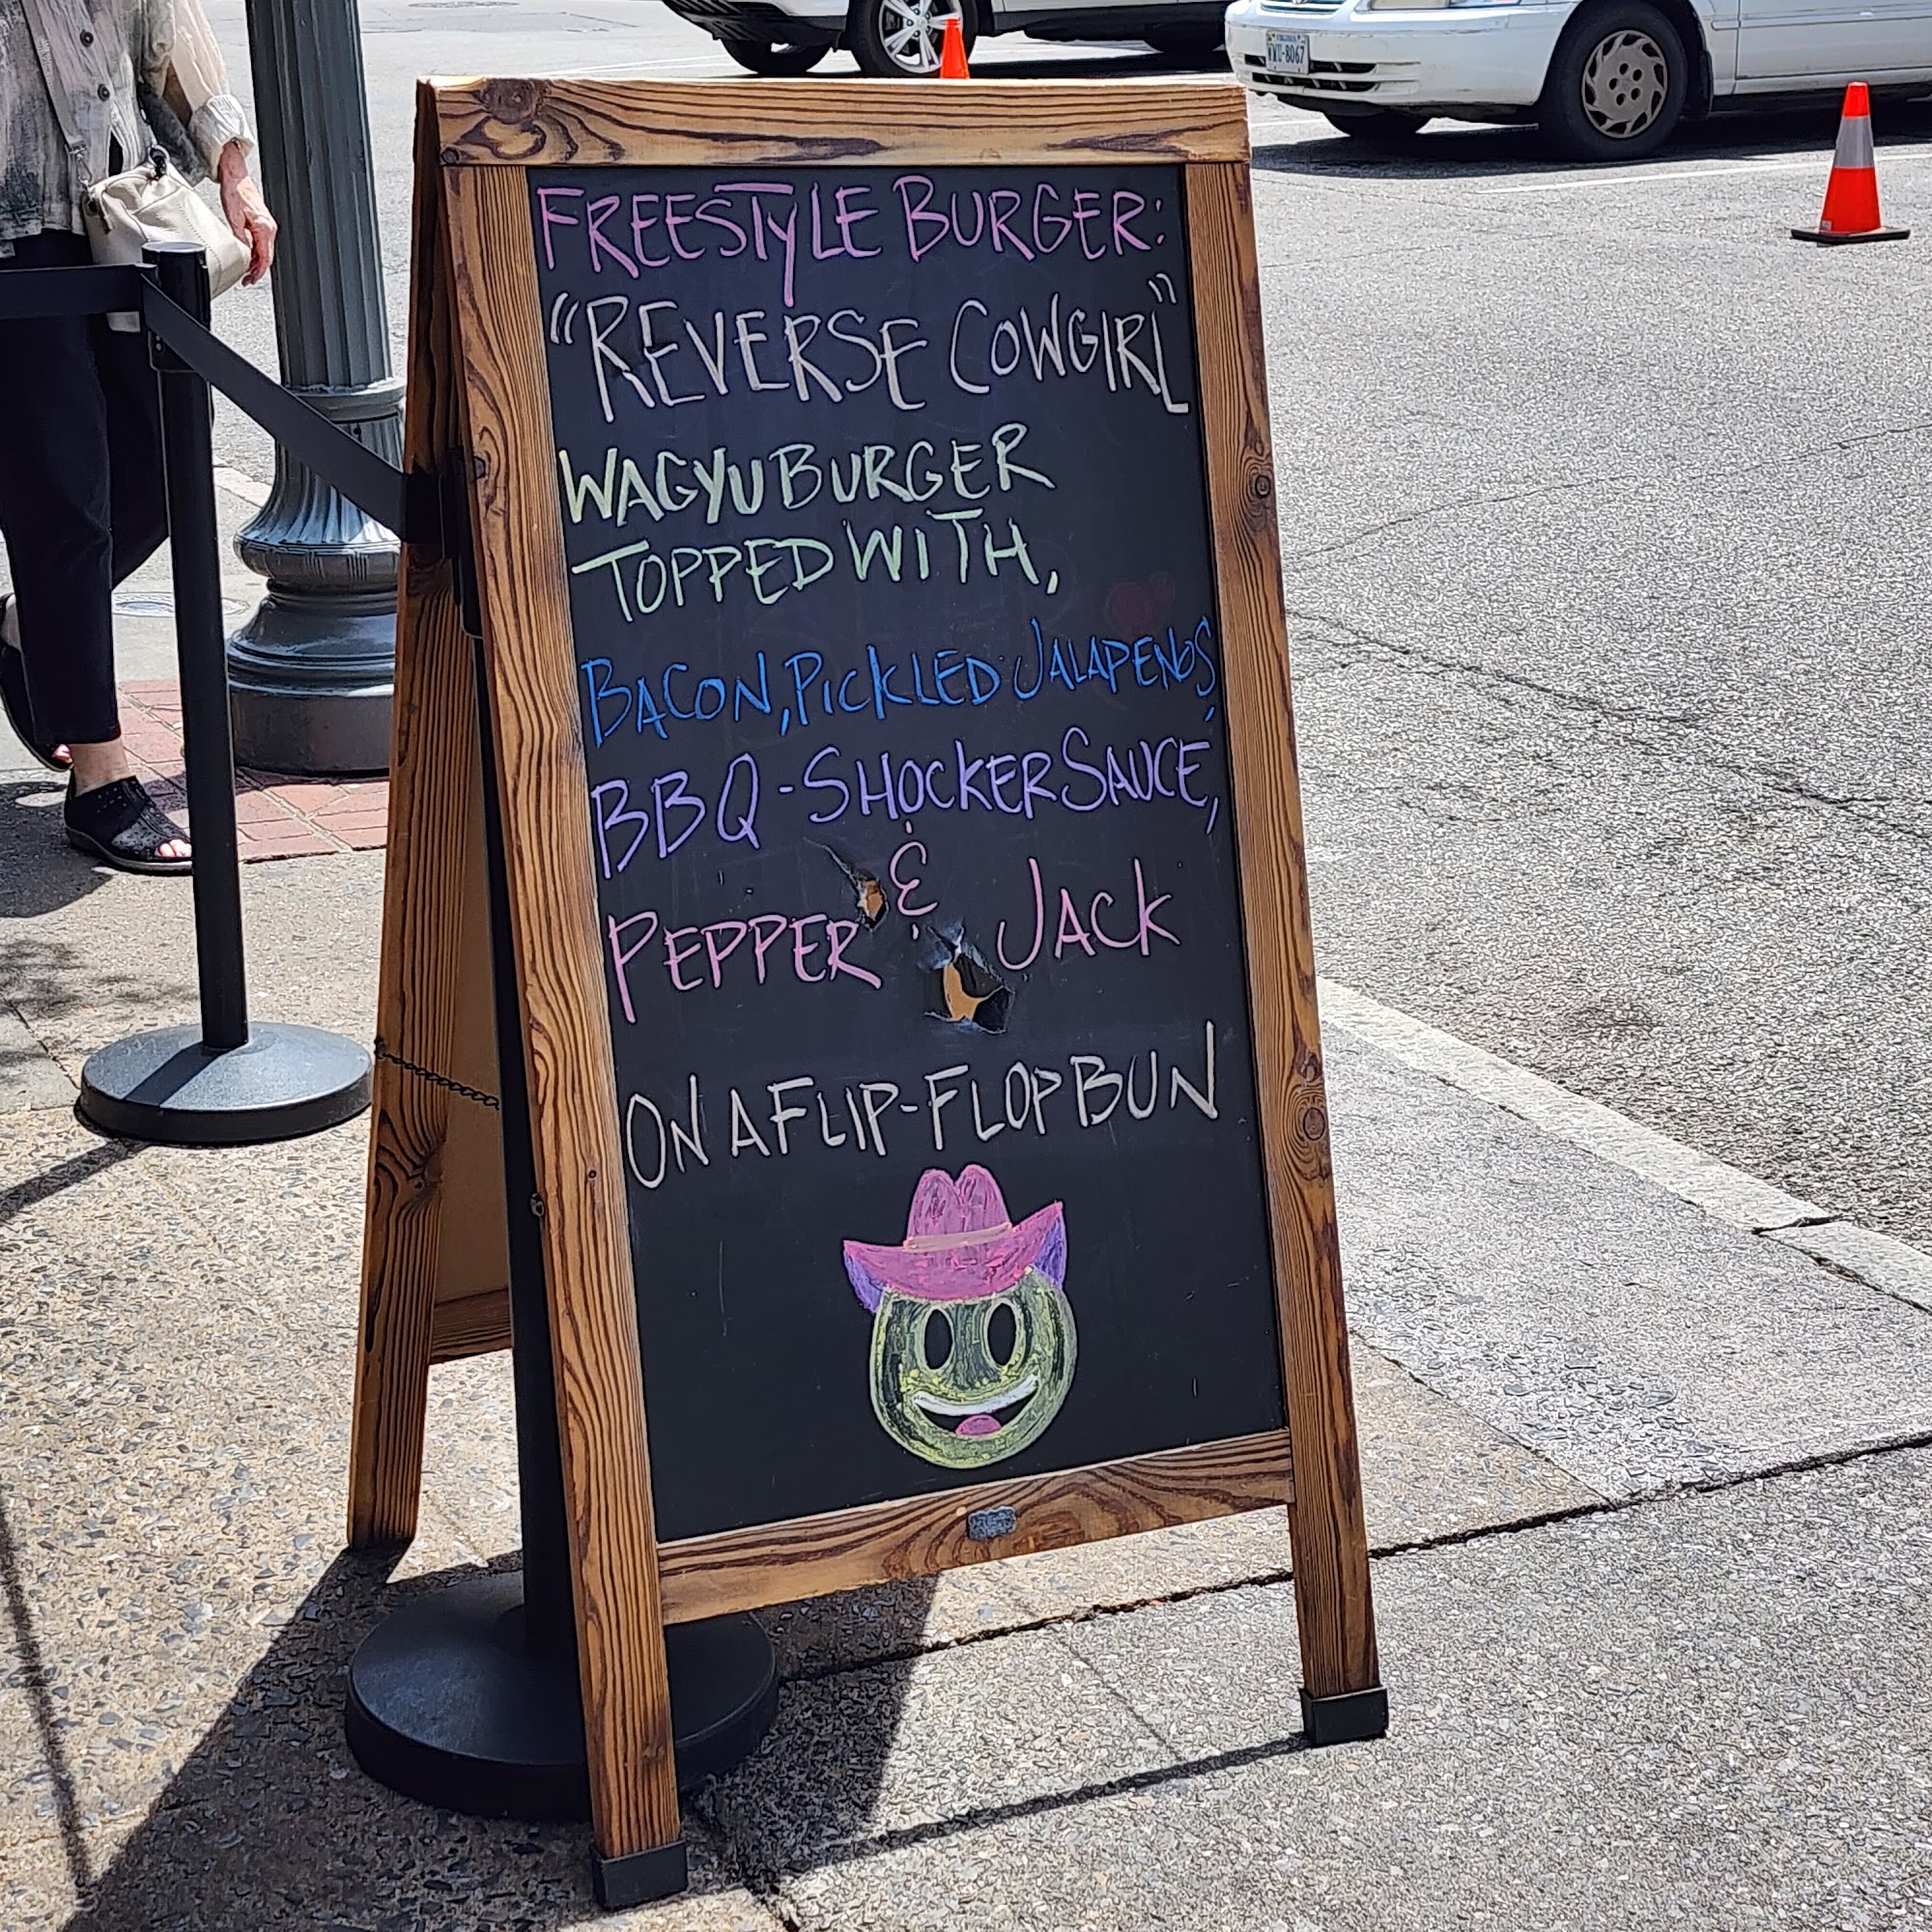 FREESTYLE BURGER:
"REVERSE COWGIRL"
WAGYU BURGER
TOPPED WITH,
BACON, PICKLED JALAPENOS,
BBQ-SHOCKER SAUCE,
&
PEPPER JACK
ON A FLIP-FLOP BUN